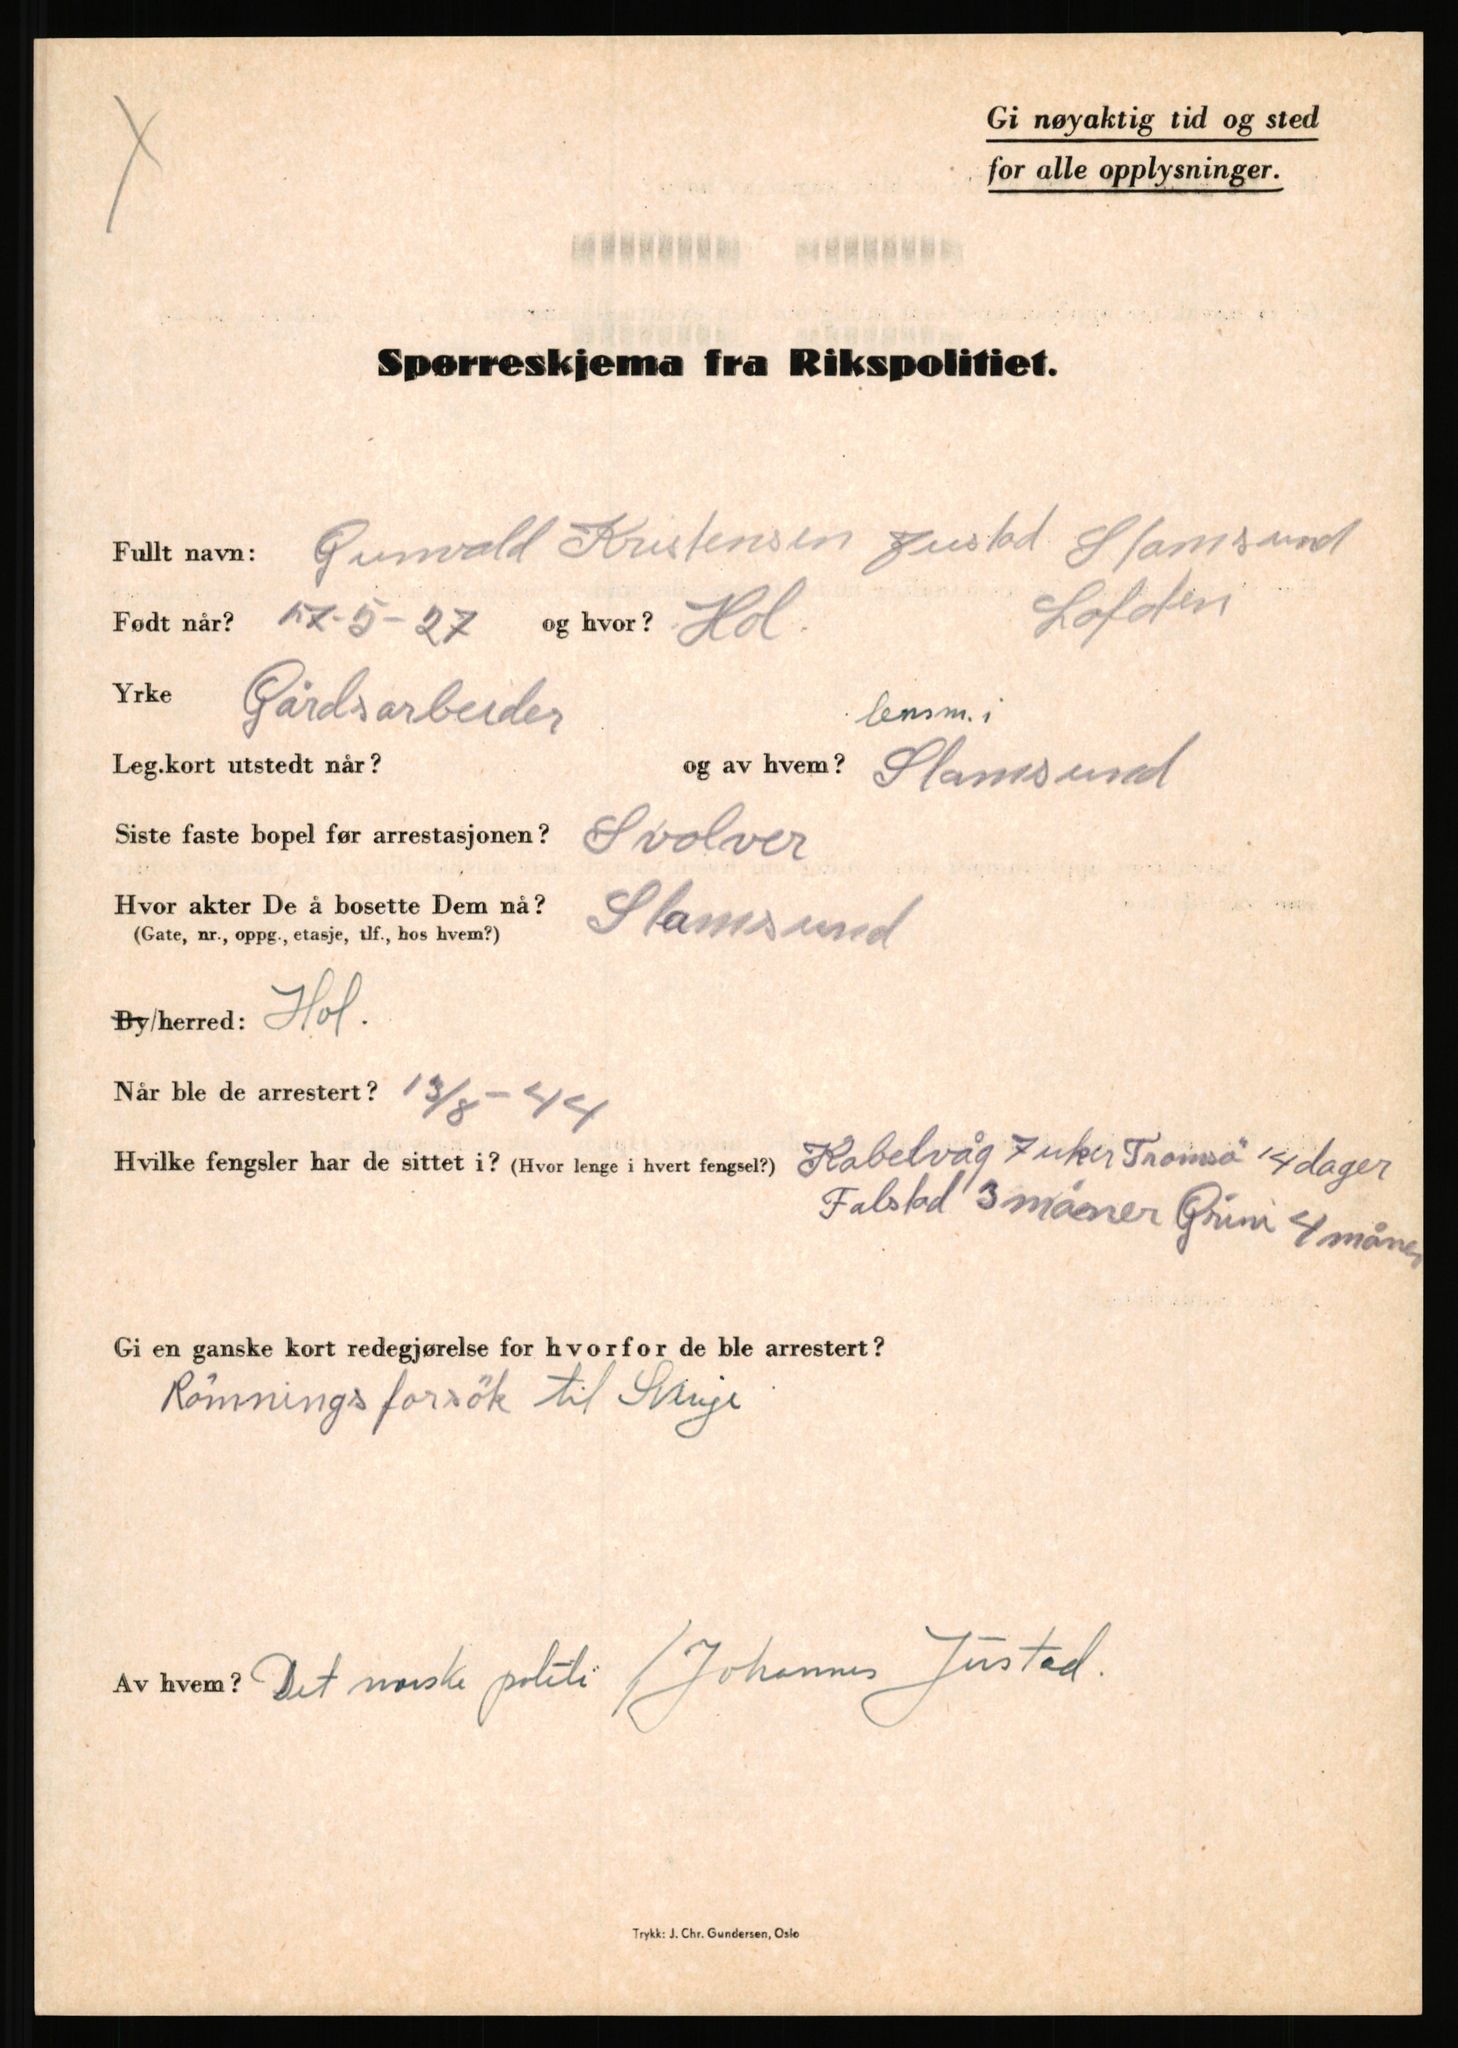 Gi nøyaktig tid og sted
for alle opplysninger.
Spørreskjema fra Rikspolitiet.
Fullt navn: Gunvald Kristensen Justad Stamsund
Født når? 17-5-27 og hvor? Hol. Lofoten
Yrke Gårdsarbeider
lensm. i
Leg.kort utstedt når? og av hvem? Stamsund
Siste faste bopel før arrestasjonen? Svolver
Hvor akter De å bosette Dem nå? Stamsund
(Gate, nr., oppg., etasje, tlf., hos hvem?)
By/herred: Hol.
Når ble de arrestert? 13/8-44
Hvilke fengsler har de sittet i? (Hvor lenge i hvert fengsel?) Kabelvåg 7 uker Tromsö 14 dager
Falstad 3 måner Grini 4 måner
Gi en ganske kort redegjørelse for hvorfor de ble arrestert?
Römningsforsök til Sverige
Av hvem? Det norske politi / Johannes Justad.
Trykk: J. Chr. Gundersen, Oslo